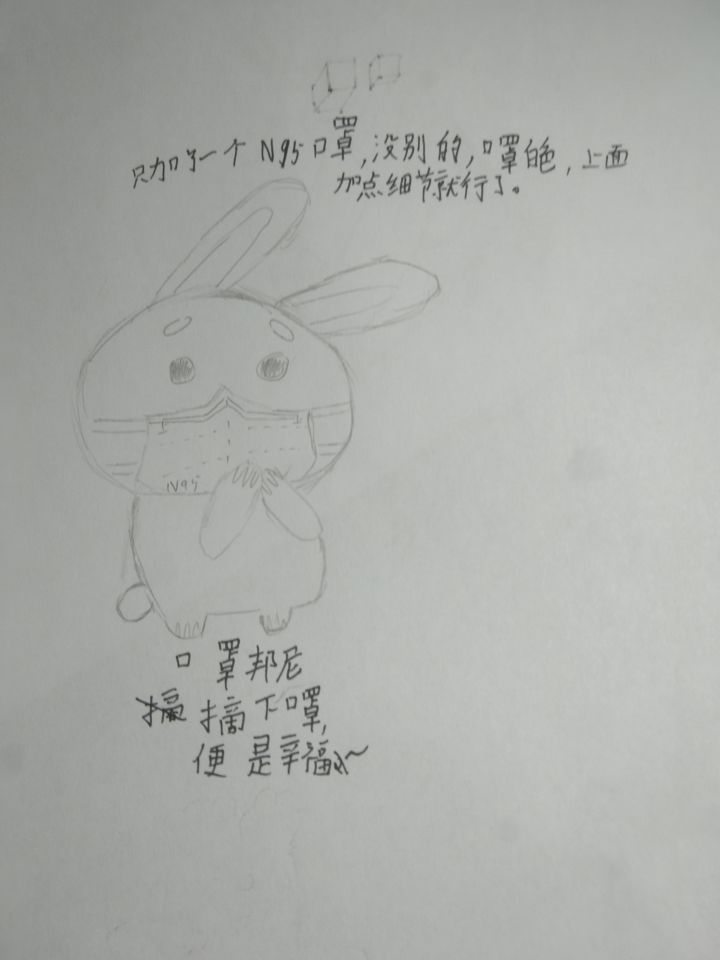 只加了一个N95口罩,没别的,口罩白色,上面
加点细节就行了。
N95
口罩邦尼
摘下口罩,
便是幸福~